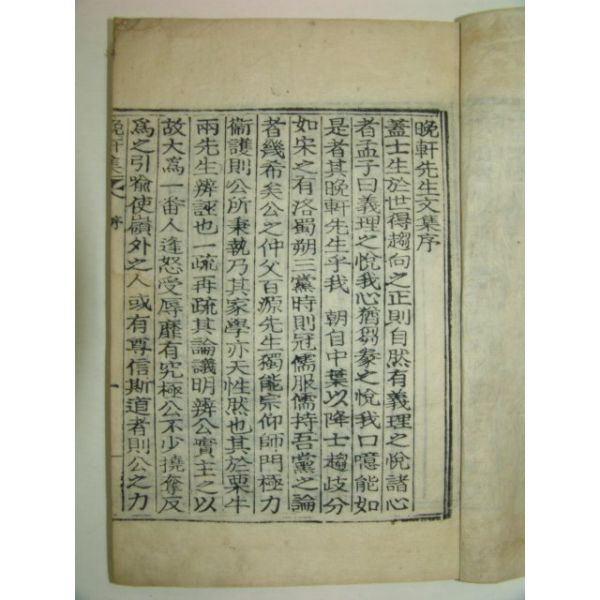 晚軒先生文集序
蓋士生於世得趨向之正則自然有義理之悅諸心
者孟子曰義理之悅我心猶芻豢之悅我口噫能如
是者其晚軒先生乎我 朝自中葉以降士趨歧分
如宋之有洛蜀朔三黨時則冠儒服儒持吾黨之論
者幾希矣公之仲父百源先生獨能宗仰師門極力
衛護則公所秉執乃其家學亦天性然也其於栗牛
兩先生辨誣也一疏再疏其論議明辨公實主之以
故大爲一番人逢怒受辱靡有究極公不少撓奪反
爲之引喩使嶺外之人或有尊信斯道者則公之力
晚軒集 序 一